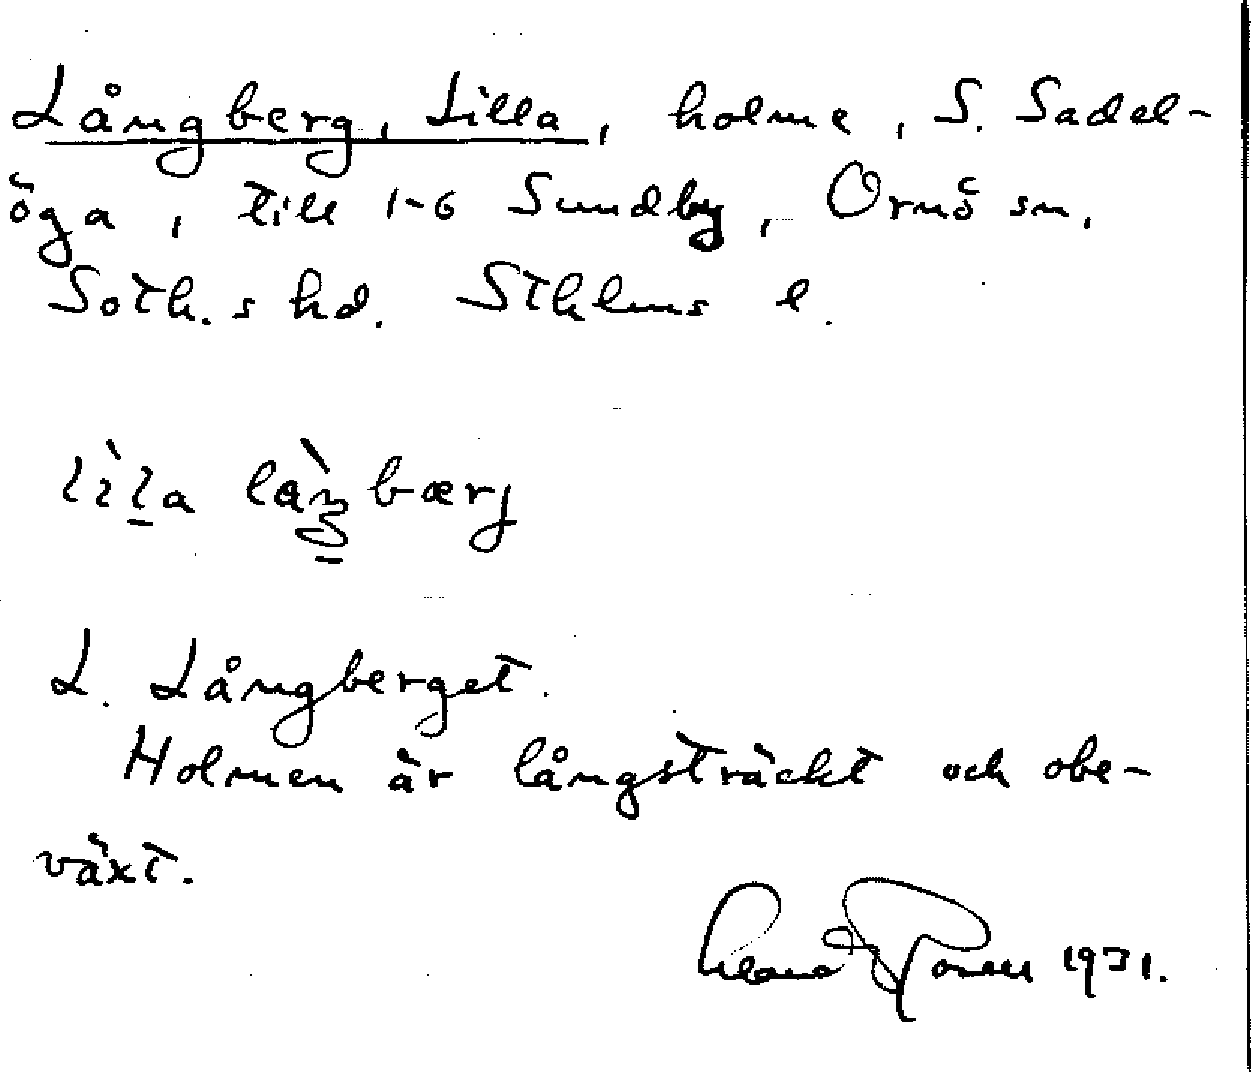 Långberg, Lilla, holme, S. Sadel-
öga, till 1-6 Sundby, Ornö sn,
Soth.s hd. Sthlms l.
lìla làŋbærj
L. Långberget.
Holmen är långsträckt och obe-
växt.
1931.